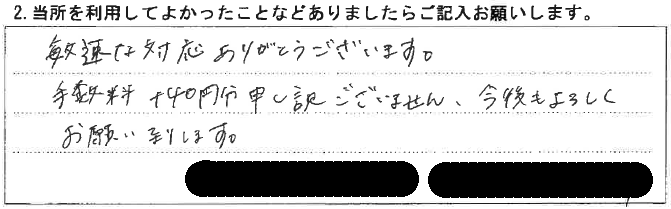 2. 当所を利用してよかったことなどありましたらご記入お願いします。
敏速な対応ありがとうございます。
手数料+40円分申し訳ございません、今後もよろしく
お願い致します。